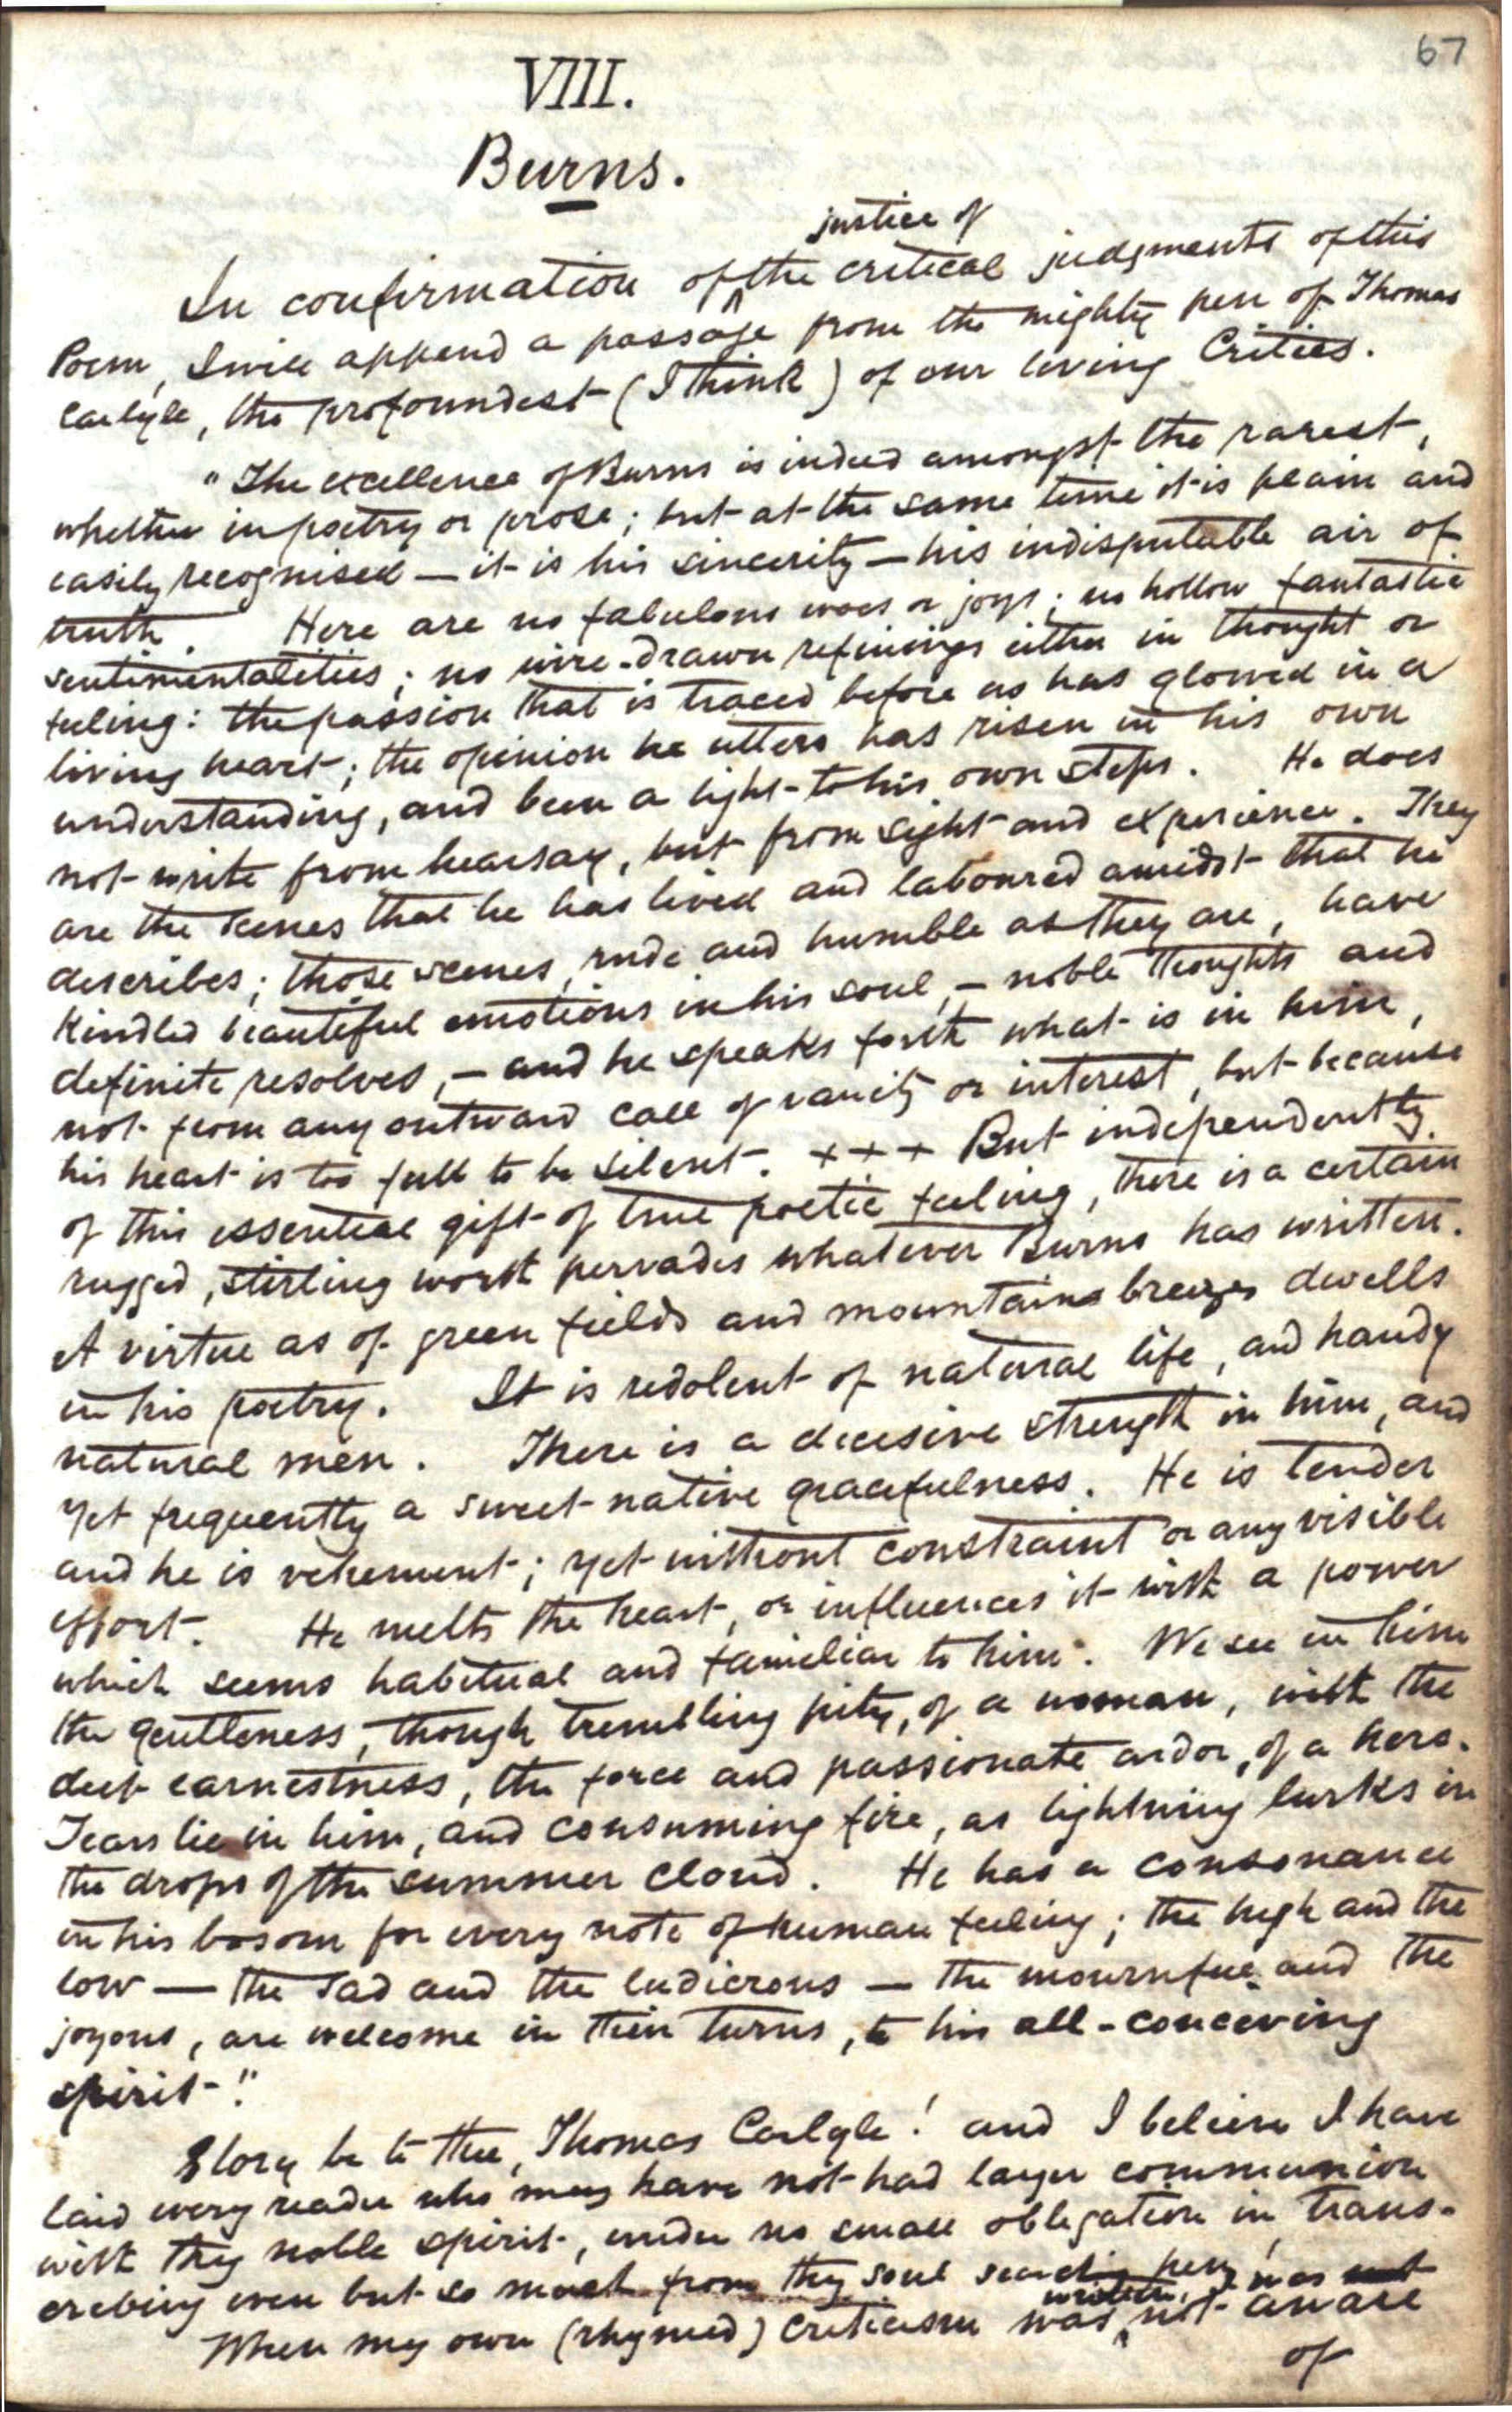 67
VIII.
Burns.
justice of
In confirmation of the critical judgments of this
Poem, I will append a passage from the mighty pen of Thomas
Carlyle, the profoundest (I think) of our living Critics.
"The excellence of Burns is indeed amongst the rarest,
whether in poetry or prose; but at the same time it is plain and
easily recognised — it is his sincerity — his indisputable air of
truth. Here are no fabulous woes or joys; no hollow fantastic
sentimentalities; no wire-drawn refinings either in thought or
feeling: the passion that is traced before us has glowed in a
living heart; the opinion he utters has risen in his own
understanding, and been a light to his own steps. He does
not write from hearsay, but from sight and experience. They
are the scenes that he has lived and laboured amidst that he
describes; those scenes, rude and humble as they are, have
kindled beautiful emotions in his soul, — noble thoughts and
definite resolves, — and he speaks forth what is in him,
not from any outward call of vanity or interest, but because
his heart is too full to be silent. + + + But independently
of this essential gift of true poetic feeling, there is a certain
rugged, stirling worth pervades whatever Burns has written.
A virtue as of green fields and mountains breezes dwells
in his poetry. It is redolent of natural life, and handy
natural men. There is a decisive strength in him, and
yet frequently a sweet native gracefulness. He is tender
and he is vehement; yet without constraint or any visible
effort. He melts the heart, or influences it with a power
which seems habitual and familiar to him. We see in him
the gentleness, though trembling pity, of a woman, with the
deep earnestness, the force and passionate ardor, of a hero.
Tears lie in him, and consuming fire, as lightning lurks in
the drops of the summer cloud. He has a consonance
in his bosom for every note of human feeling; the high and the
low — the sad and the ludicrous — the mournful and the
joyous, are welcome in their turns, to his all-conceiving
spirit."
Glory be to thee, Thomas Carlyle! and I believe I have
laid every reader who may have not had larger communion
with thy noble spirit, under no small obligation in trans-
cribing even but so much from thy soul searching pen!
written, I was not
When my own (rhymed) criticism was not aware
of